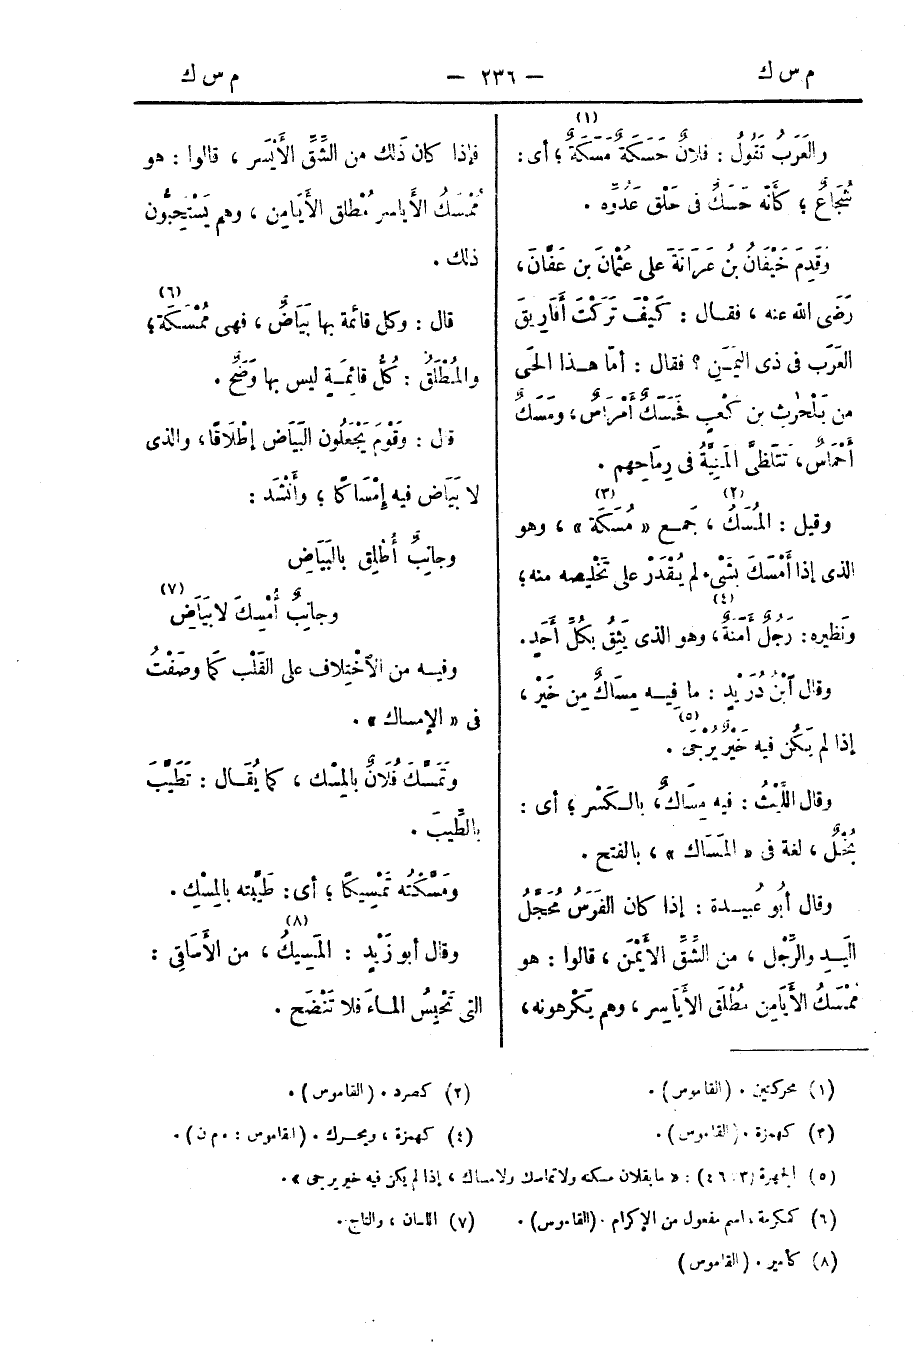 م س ك — ٢٣٦ — م س ك
(١)
والعَرَبُ تَقُولُ : فلانٌ حَسَكَةٌ مَسَكَةٌ ؛ أى :
شُجَاعٌ ؛ كأنّه حَسَكٌ فى حَلْقِ عَدُوِّه .
وقَدِمَ خَيْفَانُ بنُ عَرَانَةَ على عُثْمانَ بن عَفَّانَ،
رَضَى الله عنه ، فقال : كَيْفَ تَرَكْتَ أَفَارِيقَ
العَرَب فى ذى اليَمَنِ ؟ فقال : أمّا هذا الحَى
من بَلْحٰرث بن كَعْبٍ فَحَسَكٌ أَمْرَاسٌ ، ومَسَكٌ
أَحْمَاسٌ، تَتَلَظَّى المَنِيَّةُ فى رِمَاحِهِم .
(٢) (٣)
وقيل : المُسَكُ ، جَمع « مُسَكَة » ، وهو
الذى إذا أَمْسَكَ بشَىْء لم يُقْدَرْ على تَخْلِيصه منه؛
(٤)
ونَظيره: رَجُلٌ أُمَنَةٌ، وهو الذى يَثِقُ بكُلِّ أَحَدٍ.
وقال ٱبْنُ دُرَيْدٍ : ما فِيه مِسَاكٌ مِن خَيْر ،
(٥)
إذا لم يَكُن فيه خَيْرٌ يُرْجَى .
وقال اللَّيْثُ : فيه مِسَاكٌ، بالكَسْر ؛ أى :
بُخْلٌ ، لغة فى « المَسَاك » ، بالفتح .
وقال أبو عُبيدة : إذا كان الفَرَسُ مُحَجَّلَ
اليَد والرِّجْل ، من الشِّقّ الأَيْمَن ، قالوا : هو
مُمْسَكُ الأَيَامِن مُطْلَقُ الأَيَاسِر ، وهم يَكْرهونه،
فإذا كان ذَلك من الشِّقِّ الأَيْسَر ، قالوا : هو
مُمْسَكُ الأَياسر مُطْلَق الأَيَامِن ، وهم يَسْتَحِبُّون
ذلك .
(٦)
قال : وكل قائمة بها بَيَاضٌ ، فهى مُمْسَكَة ؛
والمُطْلَقُ : كُلُّ قائِمَةٍ ليس بها وَضَحٌ .
قال : وقَوْم يَجْعَلُون البَيَاض إطْلَاقًا، والذى
لا بَيَاض فيه إِمْسَاكًا ؛ وأَنْشَد :
وجانِبٌ أُطْلِق بالبَيَاضِ
(٧)
وجانِبٌ أُمْسِكَ لا بَيَاضِ
وفيه من الٱخْتِلاف على القَلْب كَما وصَفْتُ
فى « الإمساك » .
وتَمَسَّكَ فُلَانٌ بالمِسْك ، كما يُقَال : تَطَيَّبَ
بالطِّيبِ .
ومَسَّكْتُه تَمْسِيكًا ؛ أى : طَيَّبْته بالمِسْكِ .
(٨)
وقال أبو زَيْدٍ : المَسِيكُ ، من الأَسَاقِى :
التى تَحْبِسُ المـاءَ فلا تَنْضَح .
(١) محركتين . (القاموس) .
(٢) كصرد . (القاموس) .
(٣) كهمزة . (القاموس) .
(٤) كهمزة ، ويحرك . (القاموس : ء م ن) .
(٥) الجمهرة (٣ : ٤٦) : « ما بفلان مسكه ولا تماسك ولا مساك ، إذا لم يكن فيه خير يرجى » .
(٦) كمكرمة ، اسم مفعول من الإكرام . (القاموس) .
(٧) اللسان ، والتاج .
(٨) كأمير . (القاموس)